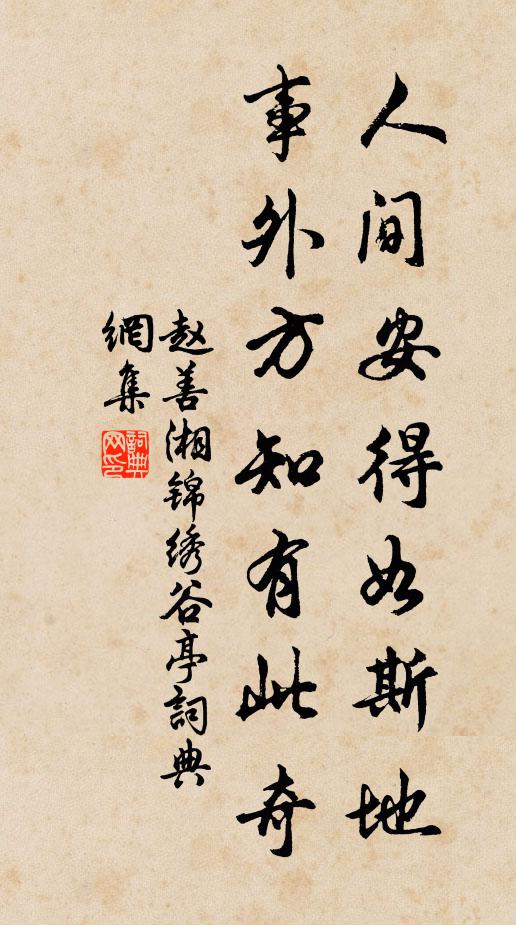 人间安得如斯地
事外方知有此奇
赵善湘锦绣谷亭詞典
網集
詞典网印